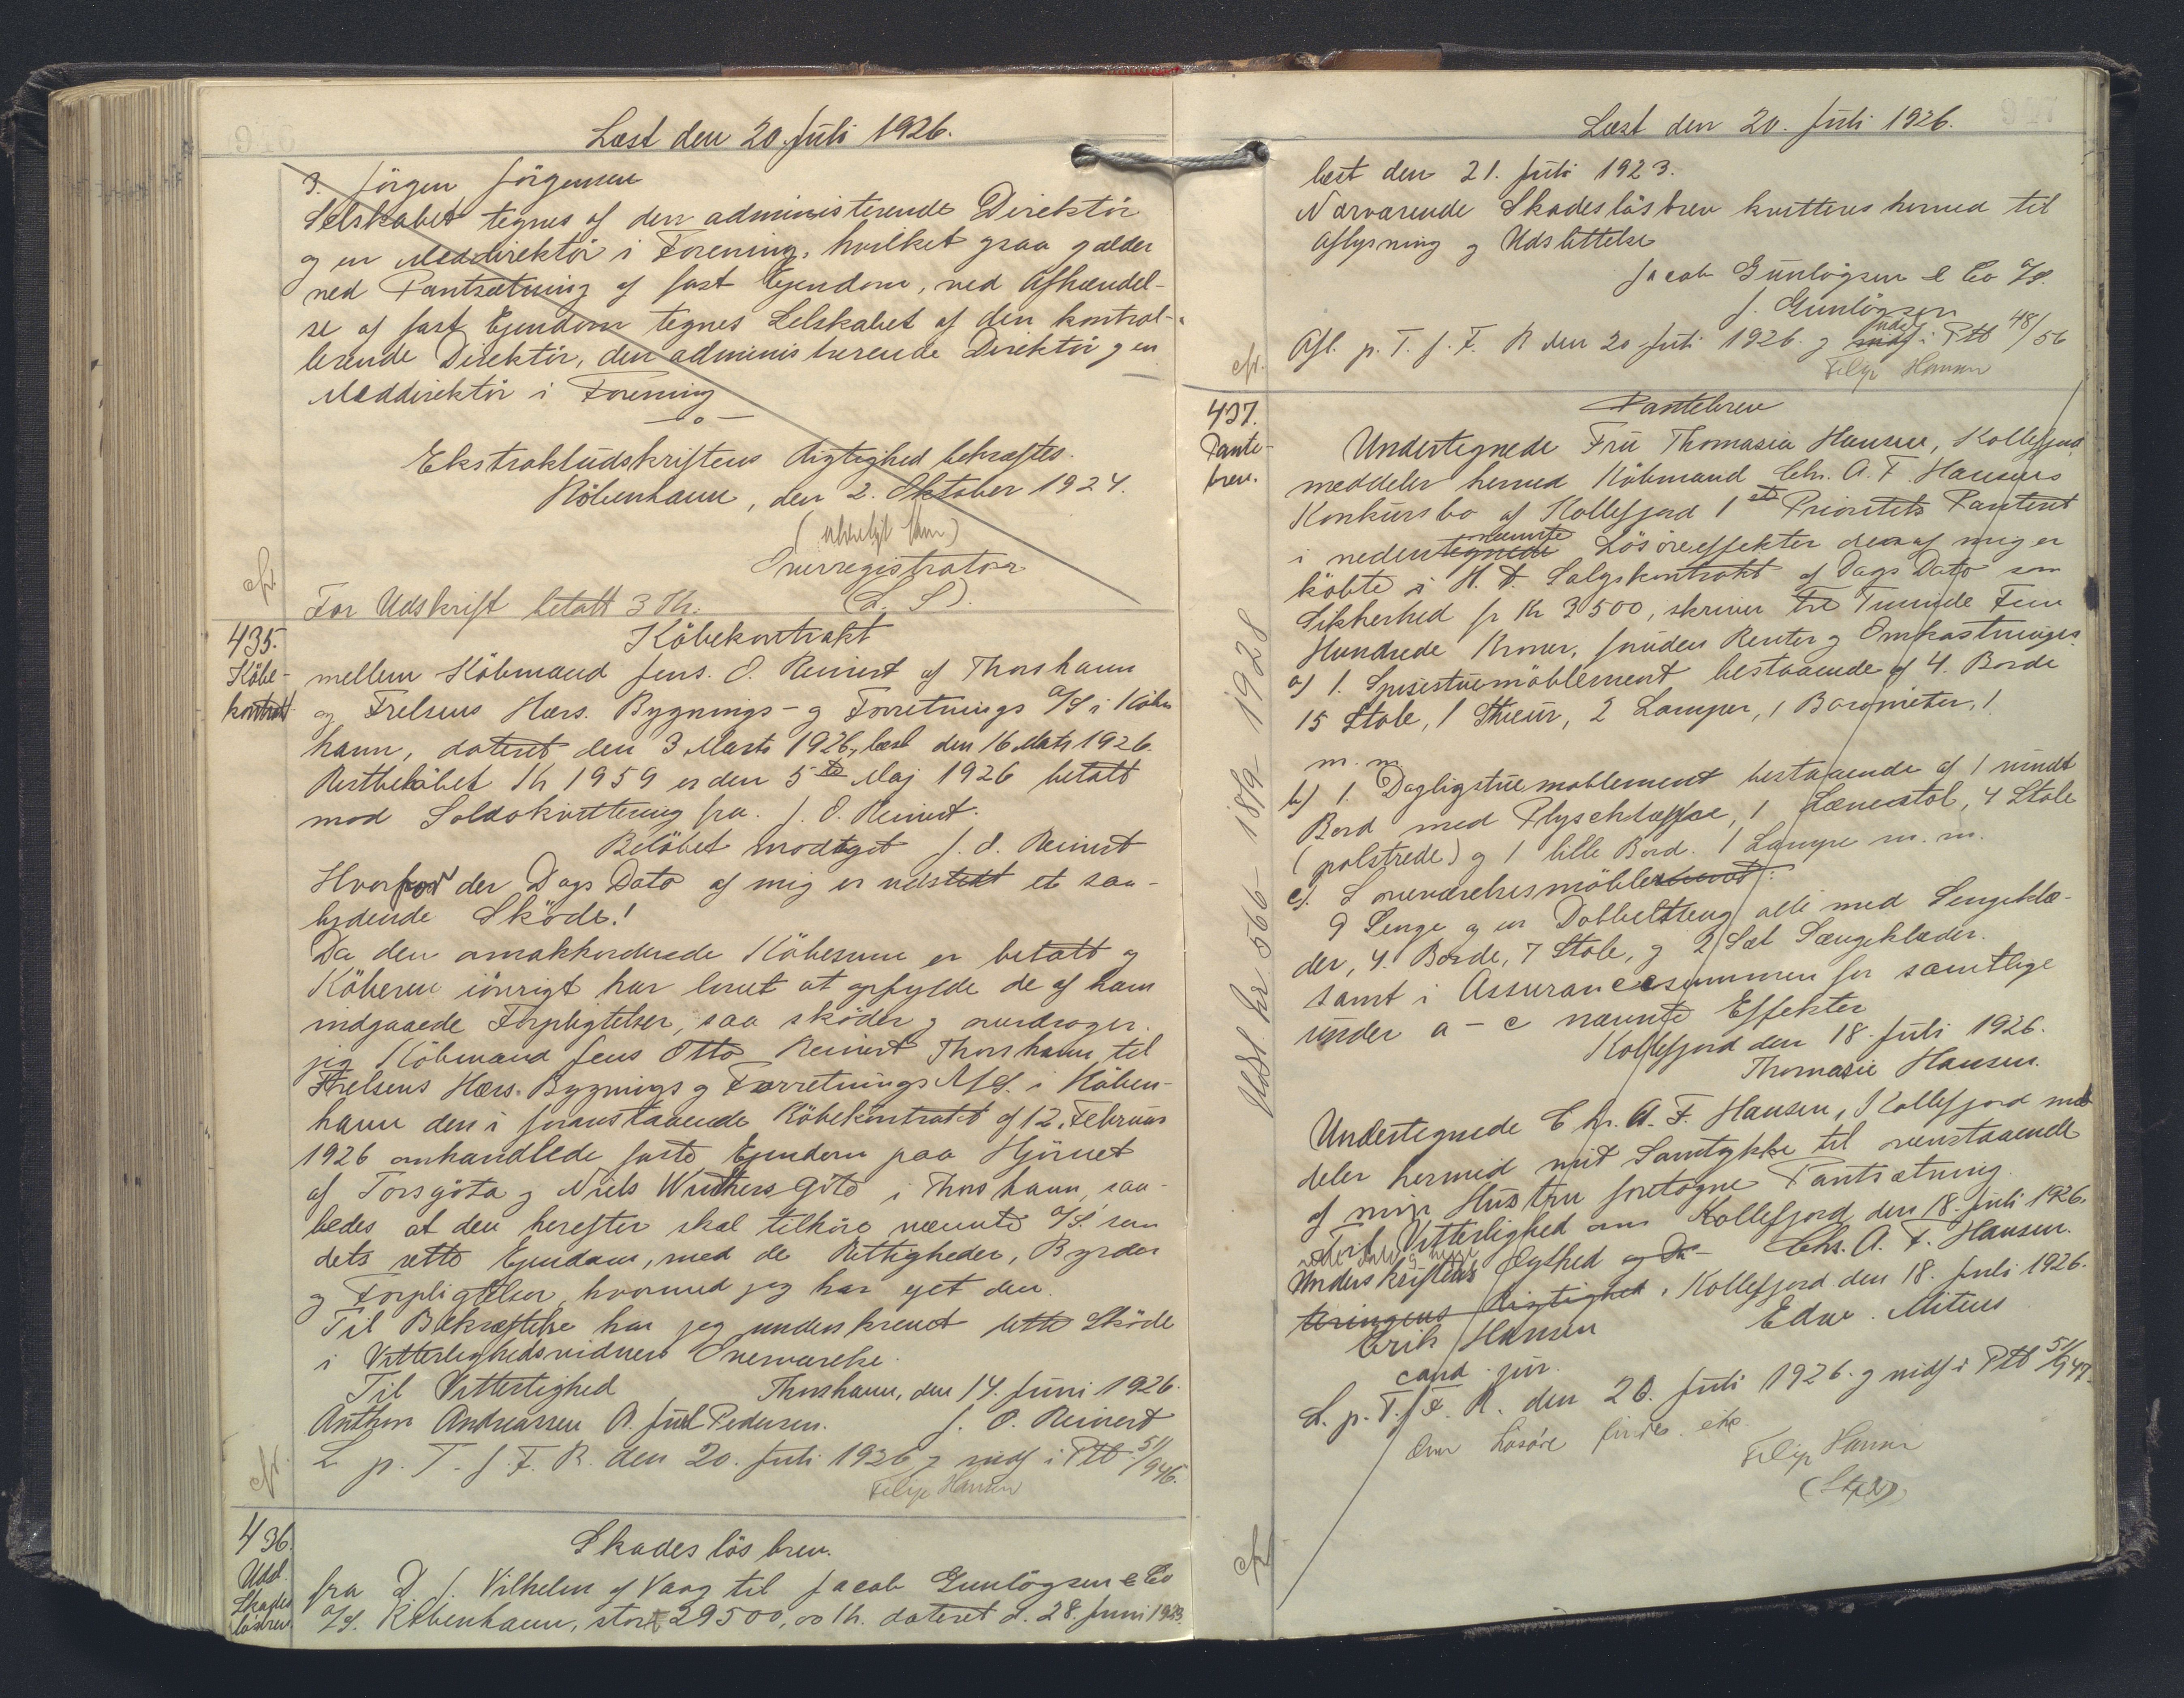 Læst den 20. Juli 1926.
3. Jörgen Jörgensen
Selskabet tegnes af den administerende Direktör
og en Meddirektör i Forening, hvilket ogsaa gælder
ved Pantsætning af fast Ejendom, ved Afhændel-
se af fast Ejendom tegnes Selskabet af den kontrol-
lerende Direktör, den administrerende Direktör og en
Meddirektör i Forening
—o—
Ekstraktudskriftens Rigtighed bekræftes.
Köbenhavn, den 2. Oktober 1924.
Overregistrator
cfr.
For Udskrift betalt 3 Kr. (L. S).
435.
Köbe-
kontrakt
Köbekontrakt
mellem Köbmand Jens. O. Reinert af Thorshavn
og Frelsens Hærs. Bygnings- og Forretnings A/S i Köben
havn, dateret den 3 Marts 1926, læst den 16 Marts 1926.
Restbelöbet Kr 1959 er den 5te Maj 1926 betalt
mod Saldokvittering fra J. O. Reinert.
Belöbet modtaget J. O. Reinert
Hvorfor der Dags Dato af mig er udstedt et saa-
lydende Sköde!
Da den omakkorderede Köbesum er betalt og
Köberen iövrigt har lovet at opfylde de af ham
indgaaede Forpligtelser, saa sköder og overdrager
jeg Köbmand Jens Otto Reinert Thorshavn til
Frelsens Hærs. Bygnings og Forretnings A/S. i Köben-
havn den i foranstaaende Köbekontrakt af 12. Februar
1926 omhandlede faste Ejendom paa Hjörnet
af Torsgöta og Niels Winthers göto i Thorshavn, saa-
ledes at den herefter skal tilhöre nævnte A/S. som
dets rette Ejendom, med de Rettigheder, Byrder
og Forpligtelser, hvormed jeg har ejet den.
Til Bekræftelse har jeg underskrevet dette Sköde
i Vitterlighedsvidners Overværelse.
Til Vitterlighed Thorshavn, den 14. Juni 1926.
Anthon Andreassen A. Juul Pedersen. J. O. Reinert
cfr.
L p. T. f. F. R. den 20. Juli 1926 og indf i Ptb 51/946.
Filip Hansen
436.
Udsl.
Skades
lösbrev
Skadeslös brev.
fra D. J. Vilhelm af Vaag til Jacob Gunlögsen & Co
A/S. Köbenhavn, stort 29500,00 Kr. dateret d. 28. Juni 1923.
Læst den 20. Juli 1926.
læst den 21. Juli 1923.
Nærværende Skadeslösbrev kvitteres herved til
Aflysning og Udslettelse
Jacob Gunlögsen & Co A/S.
J. Gunlögsen
cfr.
Afl. p. T. f. F. R den 20 Juli 1926. og indf i Ptb 48/56
Filip Hansen
437.
Pante-
brev.
Pantebrev
Undertegnede Fru Thomasia Hansen, Kollefjord
meddeler herved Köbmand Chr. A. F. Hansens
Konkursbo af Kollefjord 1ste Prioritets Panteret
nævnte
i nedentegnede Lösöreeffekter den af mig er
köbte i H. t. Salgskontrakt af Dags Dato som
Sikkerhed for Kr 3500, skriver Tre Tusinde Fem
Hundrede Kroner, foruden Renter og Omkostninger.
a) 1. Spisestuemöblement bestaaende af 4. Borde
15 Stole, 1 Skænk, 2 Lamper, 1 Barometer, 1
m. m.
b) 1. Dagligstuemoblement bestaaende af 1 rundt
Bord med Plyschtæppe, 1 Lænestol, 4 Stole
(polstrede) og 1 lille Bord. 1 Lampe m. m.
c). Soveværelsesmöblement:
9 Senge og en Dobbeltseng alle med Sengeklæ-
der, 4. Borde, 7 Stole, og 2 Sæt Sængeklæder.
samt i Assurancesummen for samtlige
under a - c nævnte Effekter
Kollefjord den 18. Juli 1926.
Thomasie Hansen.
Udsl. Nr 566 - 18/9 1928
Undertegnede Chr. A. F. Hansen, Kollefjord med
deler hermed mit Samtykke til ovenstaaende
af min Hustru foretagne Pantsætning.
Til Vitterlighed om Kollefjord den 18. Juli 1926.
Underskriftens Ægthed og Da- Chr. A. F. Hansen.
teringens Rigtighed, Kollefjord den 18. Juli 1926.
Erik Hansen Edw. Mitens
cand. jur.
L. p. T. f. F. R. den 20. Juli 1926. og indf i Ptb 51/947.
Om Lösöre findes ikke
Filip Hansen
cfr.